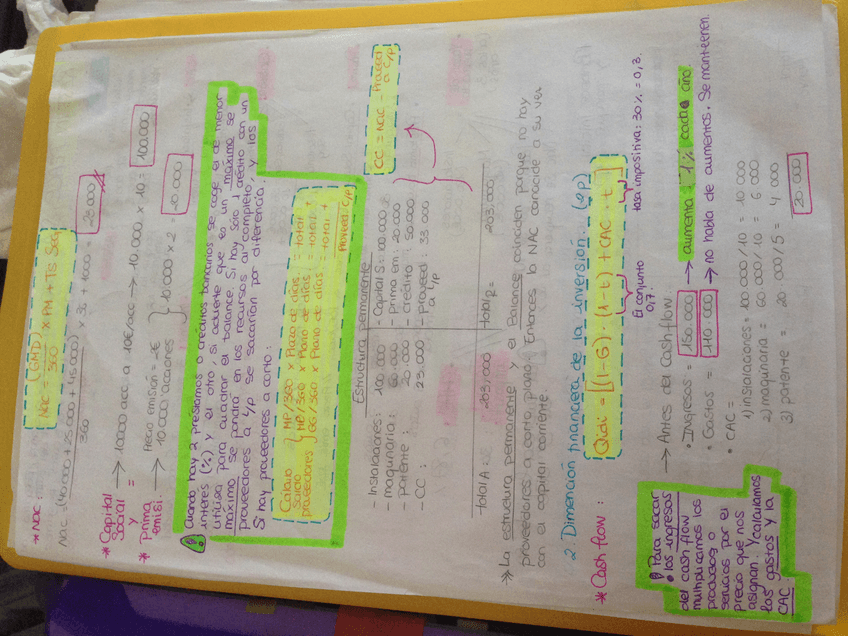 * NAC =
(GMD)
NAC = / 360 x PM + TS
NAC = (40.000 + 25.000 + 45.000) / 360 x 36 + 1000 =
* Capital Social → 10000 acc. a 10€/acc → 10.000 x 10 = 100.000
y =
* prima emisi. → Precio emisión = 2€
10.000 acciones } 10.000 x 2 = 20.000
Cuando hay 2 préstamos o créditos bancarios se coge el de menor
interés (%) y el otro si advierte que es un máximo se
utiliza para cuadrar el balance. Si hay sólo 1 crédito con un
máximo se pondrá en los recursos al completo, y los
proveedores a c/p se sacarían por diferencia.
Si hay proveedores a corto:
Cálculo saldo proveedores
MP/360 x Plazo de días = total +
x Plazo de días = total +
x Plazo de días = total +
Proveed. C/P
Estructura permanente
- Instalaciones: 100.000
- maquinaria: 60.000
- Patente: 20.000
- CC: 23.000
- Capital S.: 100.000
- prima em: 20.000
- crédito: 50.000
- proveed: 33.000
a l/p
CC = NAC - Proveed a C/P
total A: 203.000
total P = 203.000
⇒ La estructura permanente y el Balance coinciden porque no hay
proveedores a corto plazo. Entonces la NAC coincide a su vez
con el capital corriente.
2. Dimensión financiera de la inversión: (op)
* Cash flow:
Qidi = [(I - G) · (1 - t) + CAC · t]
El conjunto
0,7.
tasa impositiva: 30% = 0,3.
→ Antes del Cashflow
· Ingresos = 150.000 → aumenta 1% cada año.
· Gastos = 110.000 → no habla de aumentos. Se mantienen.
· CAC =
1) instalaciones = 100.000/10 = 10.000
2) maquinaria = 60.000/10 = 6.000
3) patente = 20.000/5 = 4.000
20.000
Para sacar
los ingresos
del cash flow
multiplicamos los
productos o
servicios por el
precio que nos
asignan. Y calculamos
los gastos y la
CAC.